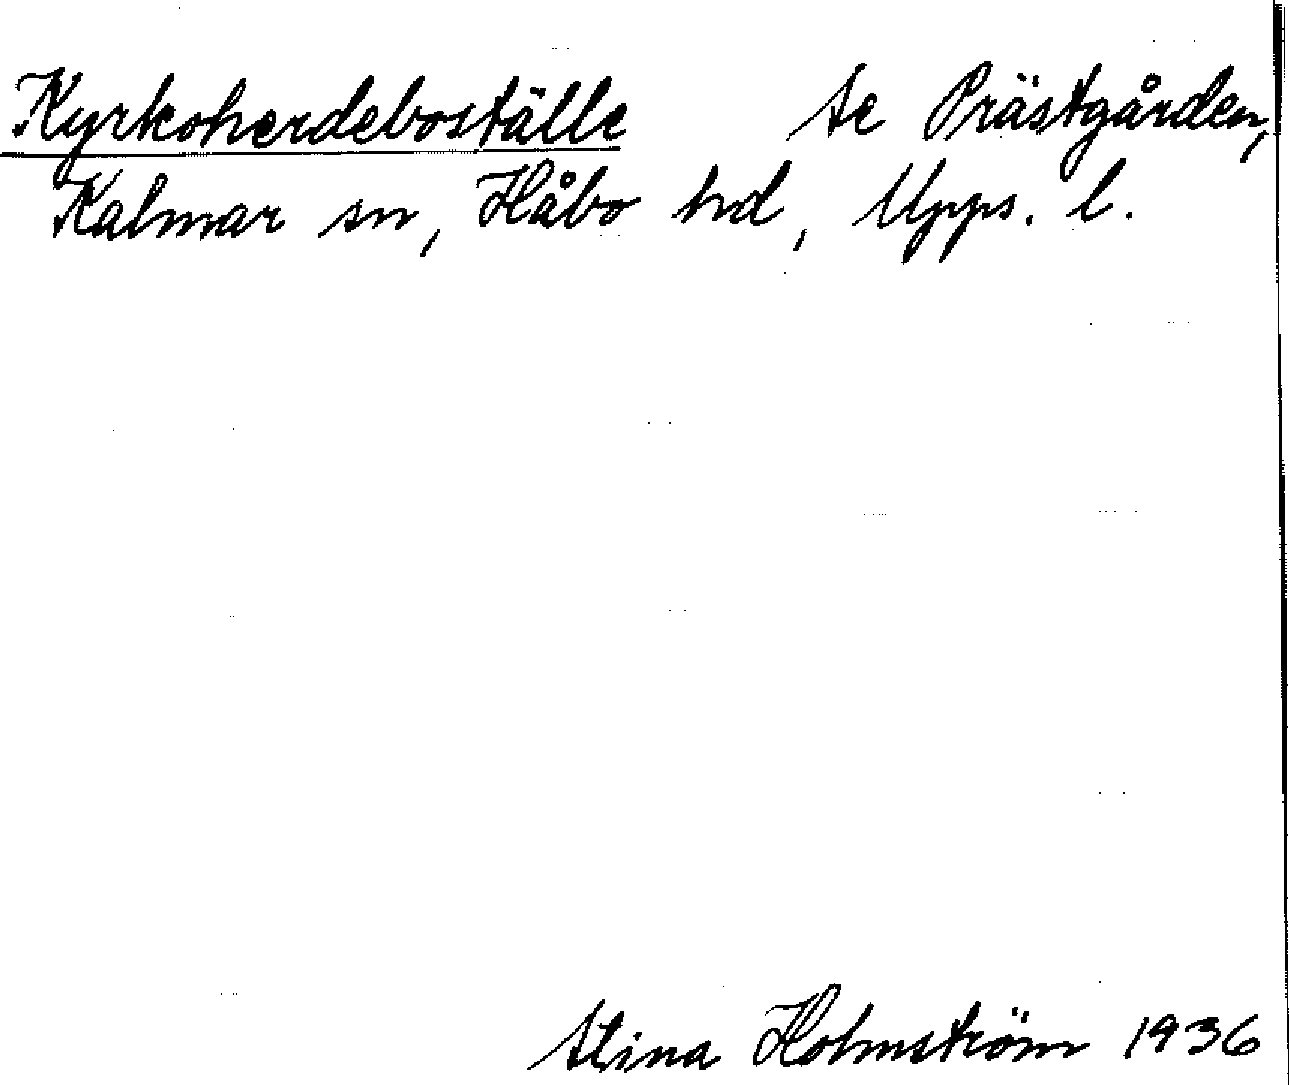 Kyrkoherdeboställe se Prästgården,
Kalmar sn, Håbo hd, Upps. l.
Stina Holmström 1936